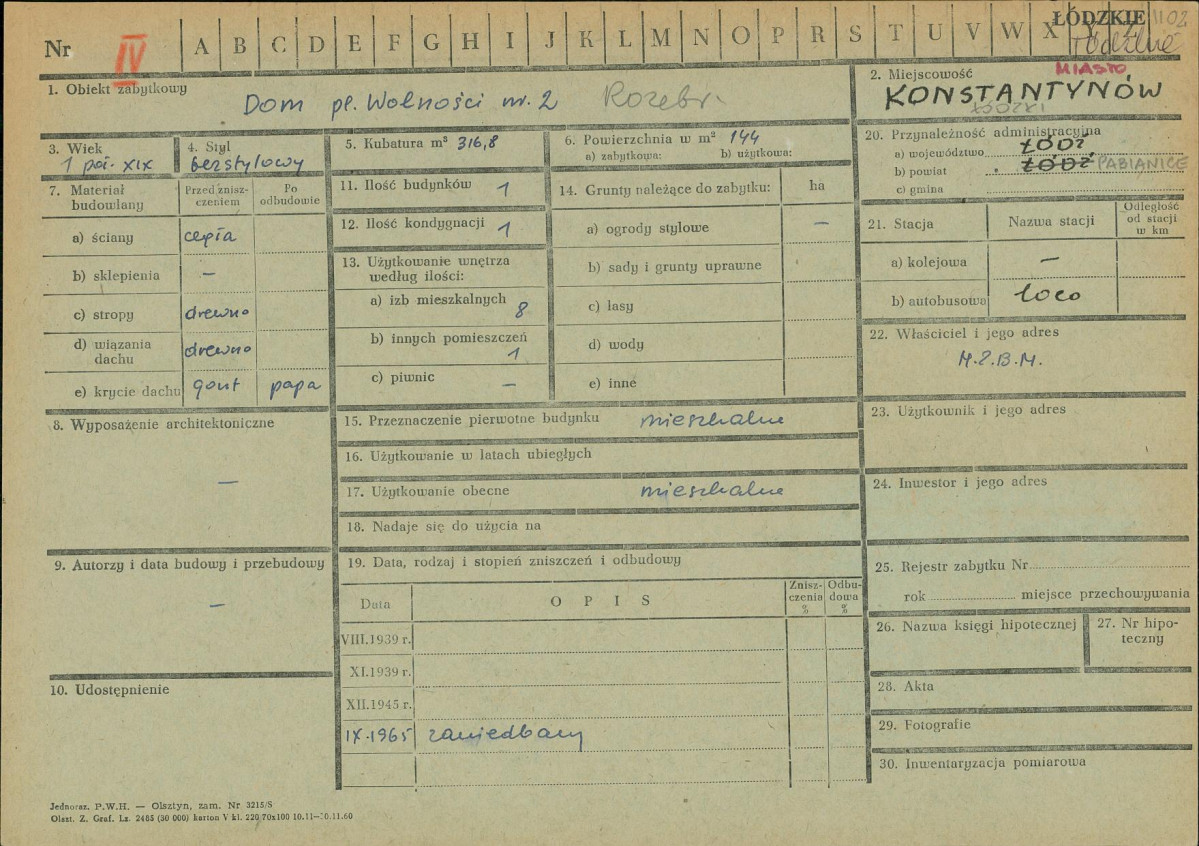 Nr IV A B C D E F G H I J K L M N O P R S T U V W X Y Z
ŁÓDZKIE
1102
MIASTO
1. Obiekt zabytkowy
Dom pl. Wolności nr. 2 Rozebr.
2. Miejscowość
KONSTANTYNÓW
ŁÓDZKI
3. Wiek
1 poł. XIX
4. Styl
bezstylowy
5. Kubatura m³ 316,8
6. Powierzchnia w m² 144
a) zabytkowa: b) użytkowa:
20. Przynależność administracyjna
a) województwo ŁÓDŹ
b) powiat ŁÓDŹ PABIANICE
c) gmina
7. Materiał budowlany
Przed znisz-
czeniem
Po
odbudowie
a) ściany cegła
b) sklepienia —
c) stropy drewno
d) wiązania
dachu drewno
e) krycie dachu gont papa
11. Ilość budynków 1
12. Ilość kondygnacji 1
13. Użytkowanie wnętrza
według ilości:
a) izb mieszkalnych 8
b) innych pomieszczeń 1
c) piwnic —
14. Grunty należące do zabytku: ha
a) ogrody stylowe —
b) sady i grunty uprawne
c) lasy
d) wody
e) inne
21. Stacja Nazwa stacji
Odległość
od stacji
w km
a) kolejowa —
b) autobusowa loco
22. Właściciel i jego adres
M.Z.B.M.
8. Wyposażenie architektoniczne
—
15. Przeznaczenie pierwotne budynku mieszkalne
16. Użytkowanie w latach ubiegłych
17. Użytkowanie obecne mieszkalne
18. Nadaje się do użycia na
23. Użytkownik i jego adres
24. Inwestor i jego adres
9. Autorzy i data budowy i przebudowy
—
19. Data, rodzaj i stopień zniszczeń i odbudowy
Data OPIS
Znisz-
czenia
%
Odbu-
dowa
%
VIII.1939 r.
XI.1939 r.
XII.1945 r.
IX.1965 zaniedbany
25. Rejestr zabytku Nr
rok miejsce przechowywania
26. Nazwa księgi hipotecznej
27. Nr hipo-
teczny
10. Udostępnienie
28. Akta
29. Fotografie
30. Inwentaryzacja pomiarowa
Jednoraz. P.W.H. — Olsztyn, zam. Nr 3215/S
Olszt. Z. Graf. Lz. 2485 (30 000) karton V kl. 220 70x100 10.11—10.11.60